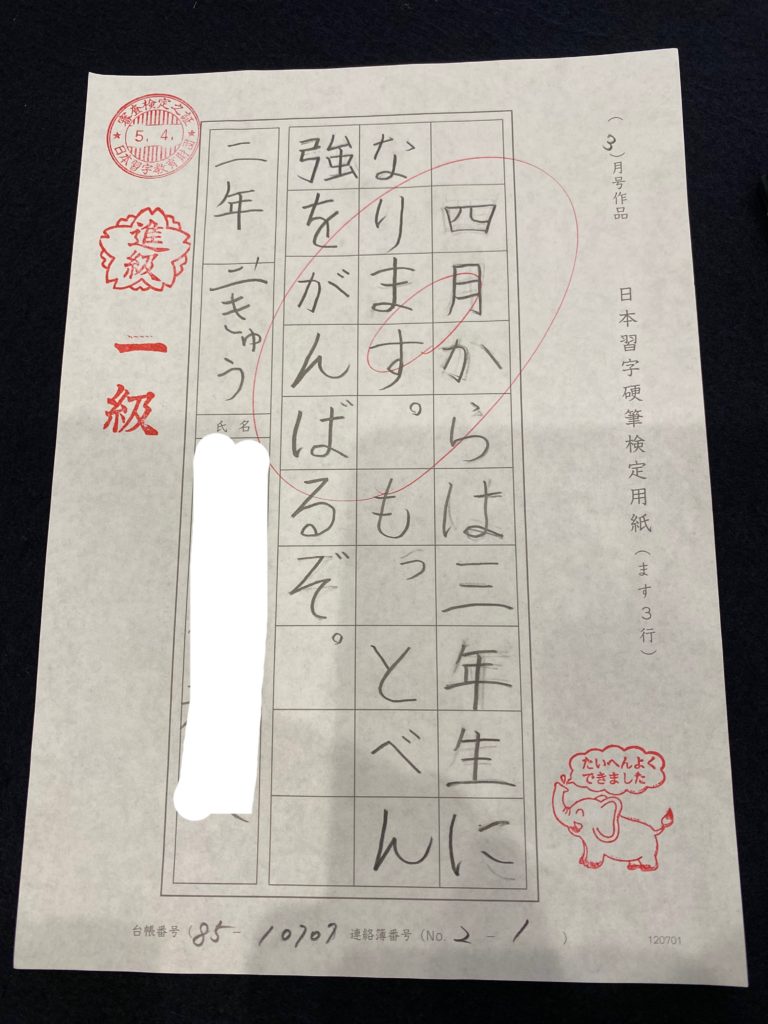 (3)月号作品
日本習字硬筆検定用紙(ます3行)
四月からは三年生に
なります。もっとべん
強をがんばるぞ。
二年 二きゅう
氏名
審査検定之証
5.4.
日本習字教育財団
進級
一級
たいへんよく
できました
台帳番号(85-10707 連絡簿番号(No.2-1)
120701